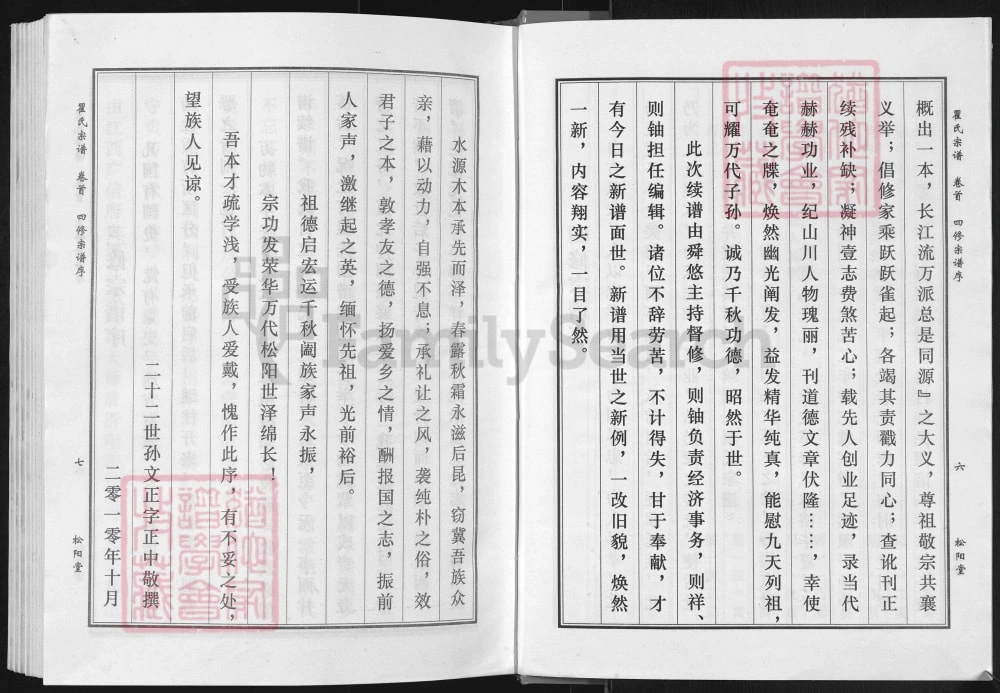 瞿氏宗谱 卷首 四修宗谱序
六
松阳堂
概出一本，长江流万派总是同源』之大义，尊祖敬宗共襄
义举；倡修家乘跃跃雀起；各竭其责戳力同心；查讹刊正
续残补缺；凝神壹志费煞苦心；载先人创业足迹，录当代
赫赫功业，纪山川人物瑰丽，刊道德文章伏隆……，幸使
奄奄之牒，焕然幽光阐发，益发精华纯真，能慰九天列祖，
可耀万代子孙。诚乃千秋功德，昭然于世。
此次续谱由舜悠主持督修，则铀负责经济事务，则祥、
则铀担任编辑。诸位不辞劳苦，不计得失，甘于奉献，才
有今日之新谱面世。新谱用当世之新例，一改旧貌，焕然
一新，内容翔实，一目了然。
水源木本承先而泽，春露秋霜永滋后昆，窃冀吾族众
亲，藉以动力，自强不息；承礼让之风，袭纯朴之俗，效
君子之本，敦孝友之德，扬爱乡之情，酬报国之志，振前
人家声，激继起之英，缅怀先祖，光前裕后。
祖德启宏运千秋阖族家声永振，
宗功发荣华万代松阳世泽绵长！
吾本才疏学浅，受族人爱戴，愧作此序，有不妥之处，
望族人见谅。
二十二世孙文正字正中敬撰
二零一零年十月
瞿氏宗谱 卷首 四修宗谱序
七
松阳堂
FamilySearch